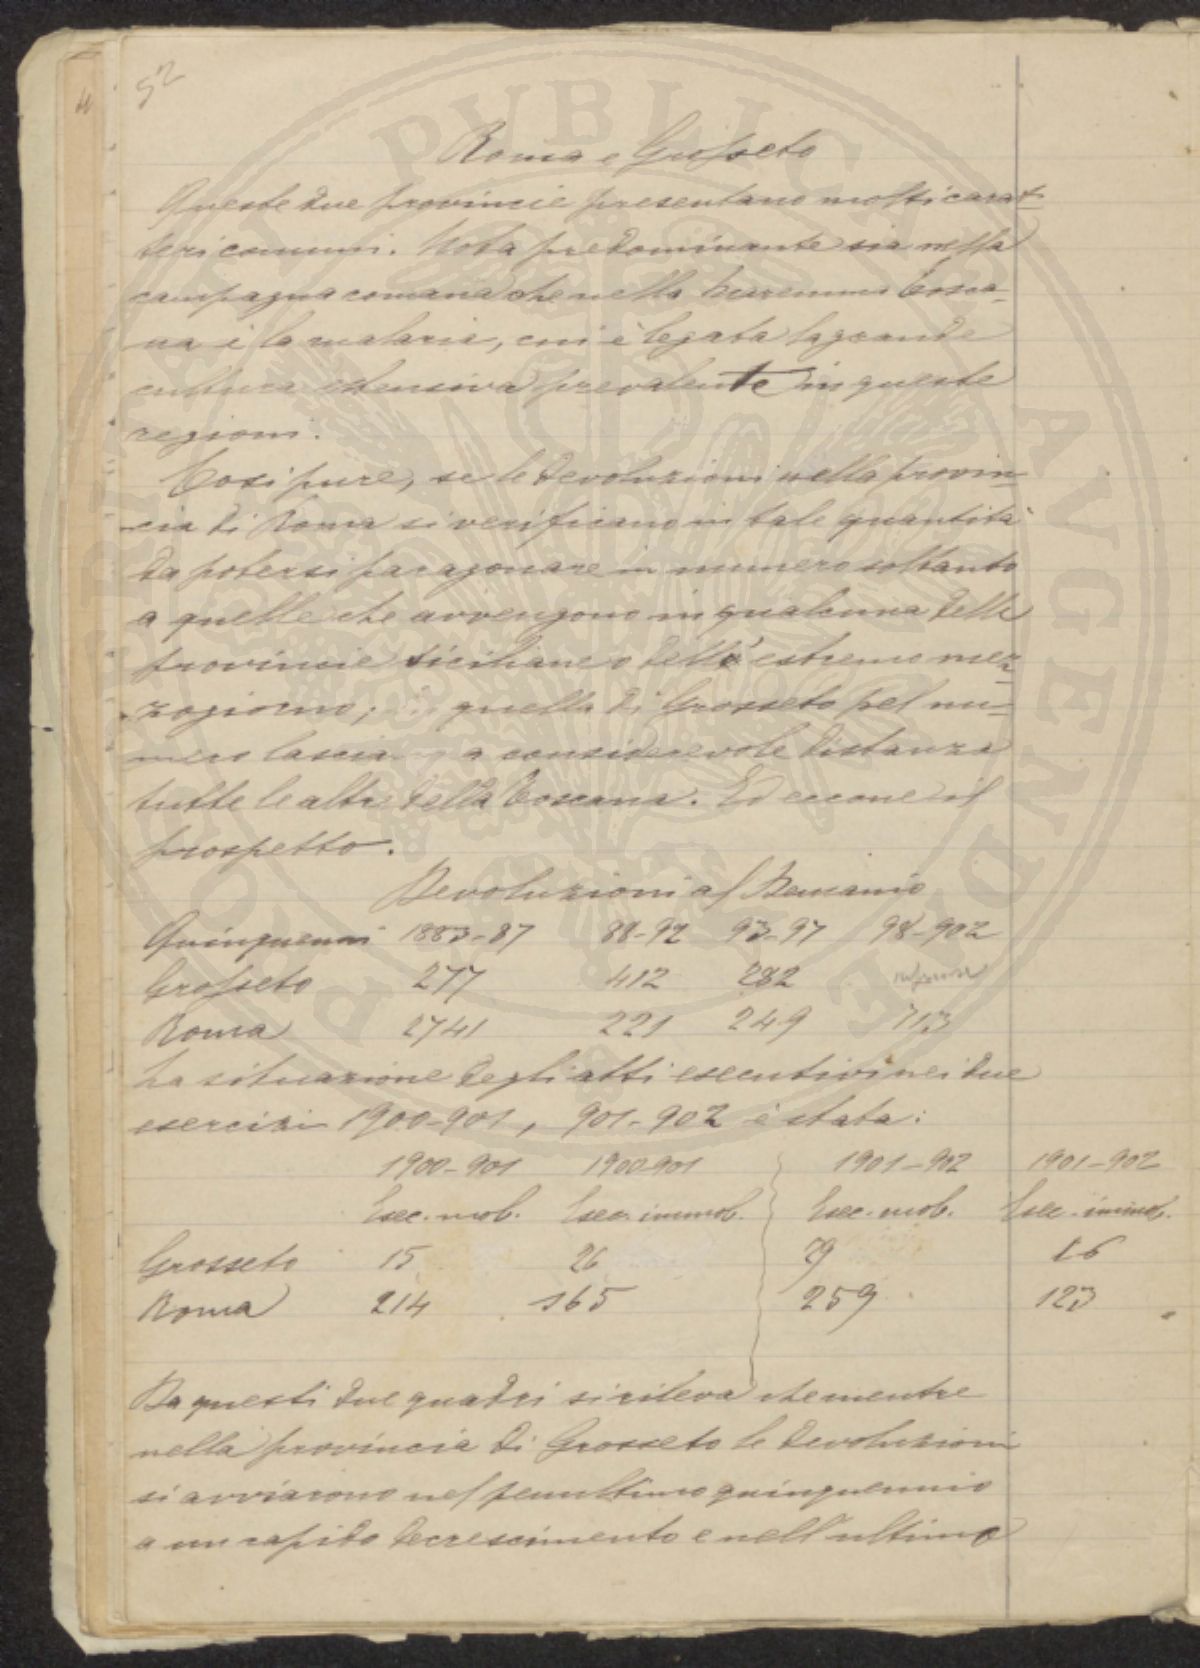 52
Roma e Grosseto
Queste due provincie presentano molti carat-
teri comuni. Nota predominante sia nella
campagna romana che nella Maremma Tosca-
na è la malaria, cui è legata la grande
cultura estensiva prevalente in queste
regioni.
Così pure, se le devoluzioni nella provin-
cia di Roma si verificano in tale quantità
da potersi paragonare in numero soltanto
a quelle che avvengono in qualcuna delle
provincie siciliane o dell'estremo mez-
zogiorno, quella di Grosseto pel nu-
mero lascia a considerevole distanza
tutte le altre della Toscana. Ed eccone il
prospetto.
Devoluzioni al Demanio
Quinquenni 1883-87 88-92 93-97 98-902
Grosseto 277 412 282
Roma 2741 221 249 713
La situazione degli atti esecutivi nei due
esercizi 1900-901, 901-902 è stata:
1900-901 1900-901 1901-902 1901-902
Esec. mob. Esec. immob. Esec. mob. Esec. immob.
Grosseto 15 26 29 16
Roma 214 165 259 123
Da questi due quadri si rileva che mentre
nella provincia di Grosseto le devoluzioni
si avviarono nel penultimo quinquennio
a un rapido decrescimento e nell'ultimo